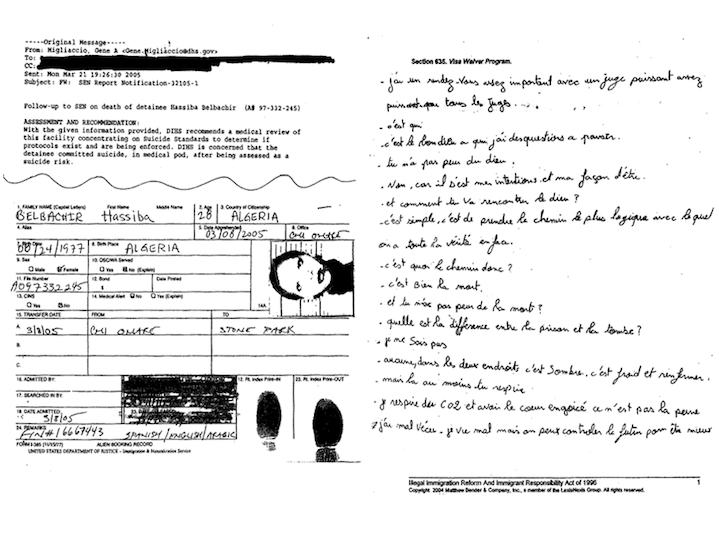 -----Original Message-----
From: Migliaccio, Gene A <Gene.Migliaccio@dhs.gov>
To:
CC:
Sent: Mon Mar 21 19:26:30 2005
Subject: FW: SEN Report Notification-32105-1
Follow-up to SEN on death of detainee Hassiba Belbachir (A# 97-332-245)
ASSESSMENT AND RECOMMENDATION:
With the given information provided, DIHS recommends a medical review of
this facility concentrating on Suicide Standards to determine if
protocols exist and are being enforced. DIHS is concerned that the
detainee committed suicide, in medical pod, after being assessed as a
suicide risk.
1. FAMILY NAME (Capital Letters) First Name Middle Name 2. Age 3. Country of Citizenship
BELBACHIR Hassiba 28 ALGERIA
4. Alias 5. Date Apprehended 6. Office
03/08/2005 CHI OMARE
8. Birth Place
/24/1977 ALGERIA
9. Sex 10. Served
Male Female Yes No (Explain)
11. File Number 12. Bond Date Printed
A097332245 $
13. CINS 14. Medical Alert No Yes (Explain) 14A.
Yes No
15. TRANSFER DATE FROM TO
A. 3/8/05 CHI OMARE STONE PARK
B.
C.
16. ADMITTED BY: Rt. Index Print-IN 23. Rt. Index Print-OUT
17. SEARCHED IN BY:
18. DATE ADMITTED
3/8/05
24. REMARKS
FIN# 16667443 SPANISH/ENGLISH/ARABIC
ALIEN BOOKING RECORD
UNITED STATES DEPARTMENT OF JUSTICE - Immigration & Naturalization Service
Section 635. Visa Waiver Program.
- j'ai un rendez-vous assez important avec un juge puissant assez
puissant que tous les juges. . . .
- c'est qui
- c'est le bon dieu a qui j'ai des questions a
- tu n'a pas peur du dieu.
- Non, car il s'est mes intentions, et ma façon d'être.
- et comment tu va rencontrer le dieu ?
- c'est simple, c'est de prendre le chemin le plus logique avec le quel
on a toute la vérité en face.
- c'est quoi le chemin donc ?
- c'est Bien la mort.
- et tu pas peur de la mort ?
- quelle est la différence entre la prison et la tombe ?
- je ne sais pas
- aucune, dans les deux endroits c'est sombre, c'est froid et renfermer.
- mais la au moins tu respire
- je respire du CO2 et avoir le coeur ce n'est pas la peine
j'ai mal vécu. je vie mal mais on peux controler le futur pour être mieux
Illegal Immigration Reform And Immigrant Responsibility Act of 1996 1
Copyright 2004 Matthew Bender & Company, Inc., a member of the LexisNexis Group. All rights reserved.